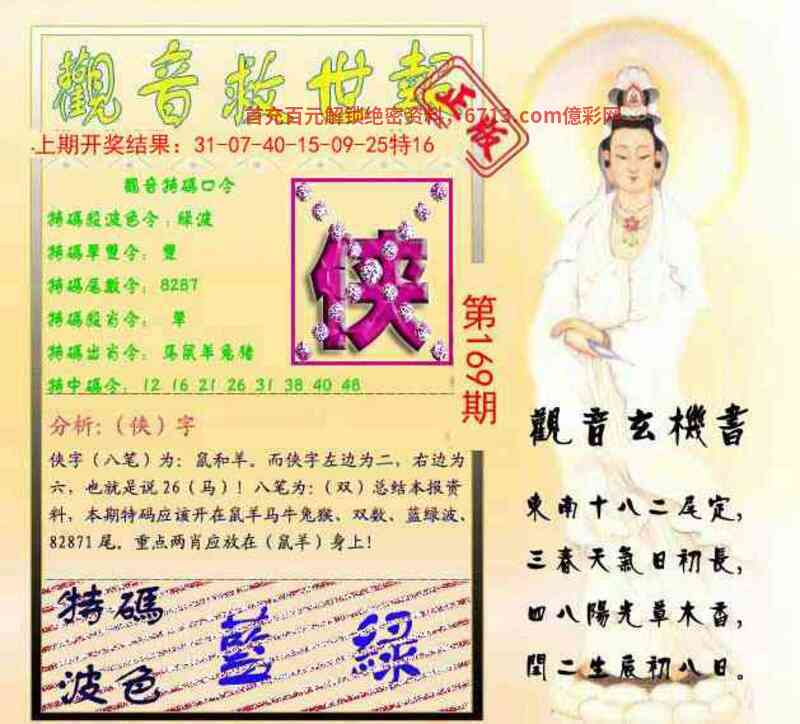 觀音救世報
正版
首充百元解锁绝密资料，6713.com億彩网
上期开奖结果：31-07-40-15-09-25特16
觀音特碼口令
特碼段波色令：綠波
特碼單雙令：雙
特碼尾數令：8287
特碼段肖令：單
特碼出肖令：马鼠羊兔猪
特中碼令：12 16 21 26 31 38 40 48
俠
第169期
分析:（侠）字
侠字（八笔）为：鼠和羊。而侠字左边为二，右边为
六，也就是说26（马）！八笔为：（双）总结本报资
料，本期特码应该开在鼠羊马牛兔猴、双数、蓝绿波、
82871尾。重点两肖应放在（鼠羊）身上！
特碼
波色
藍綠
觀音玄機書
東南十八二尾定，
三春天氣日初長，
四八陽光草木香，
閏二生辰初八日。